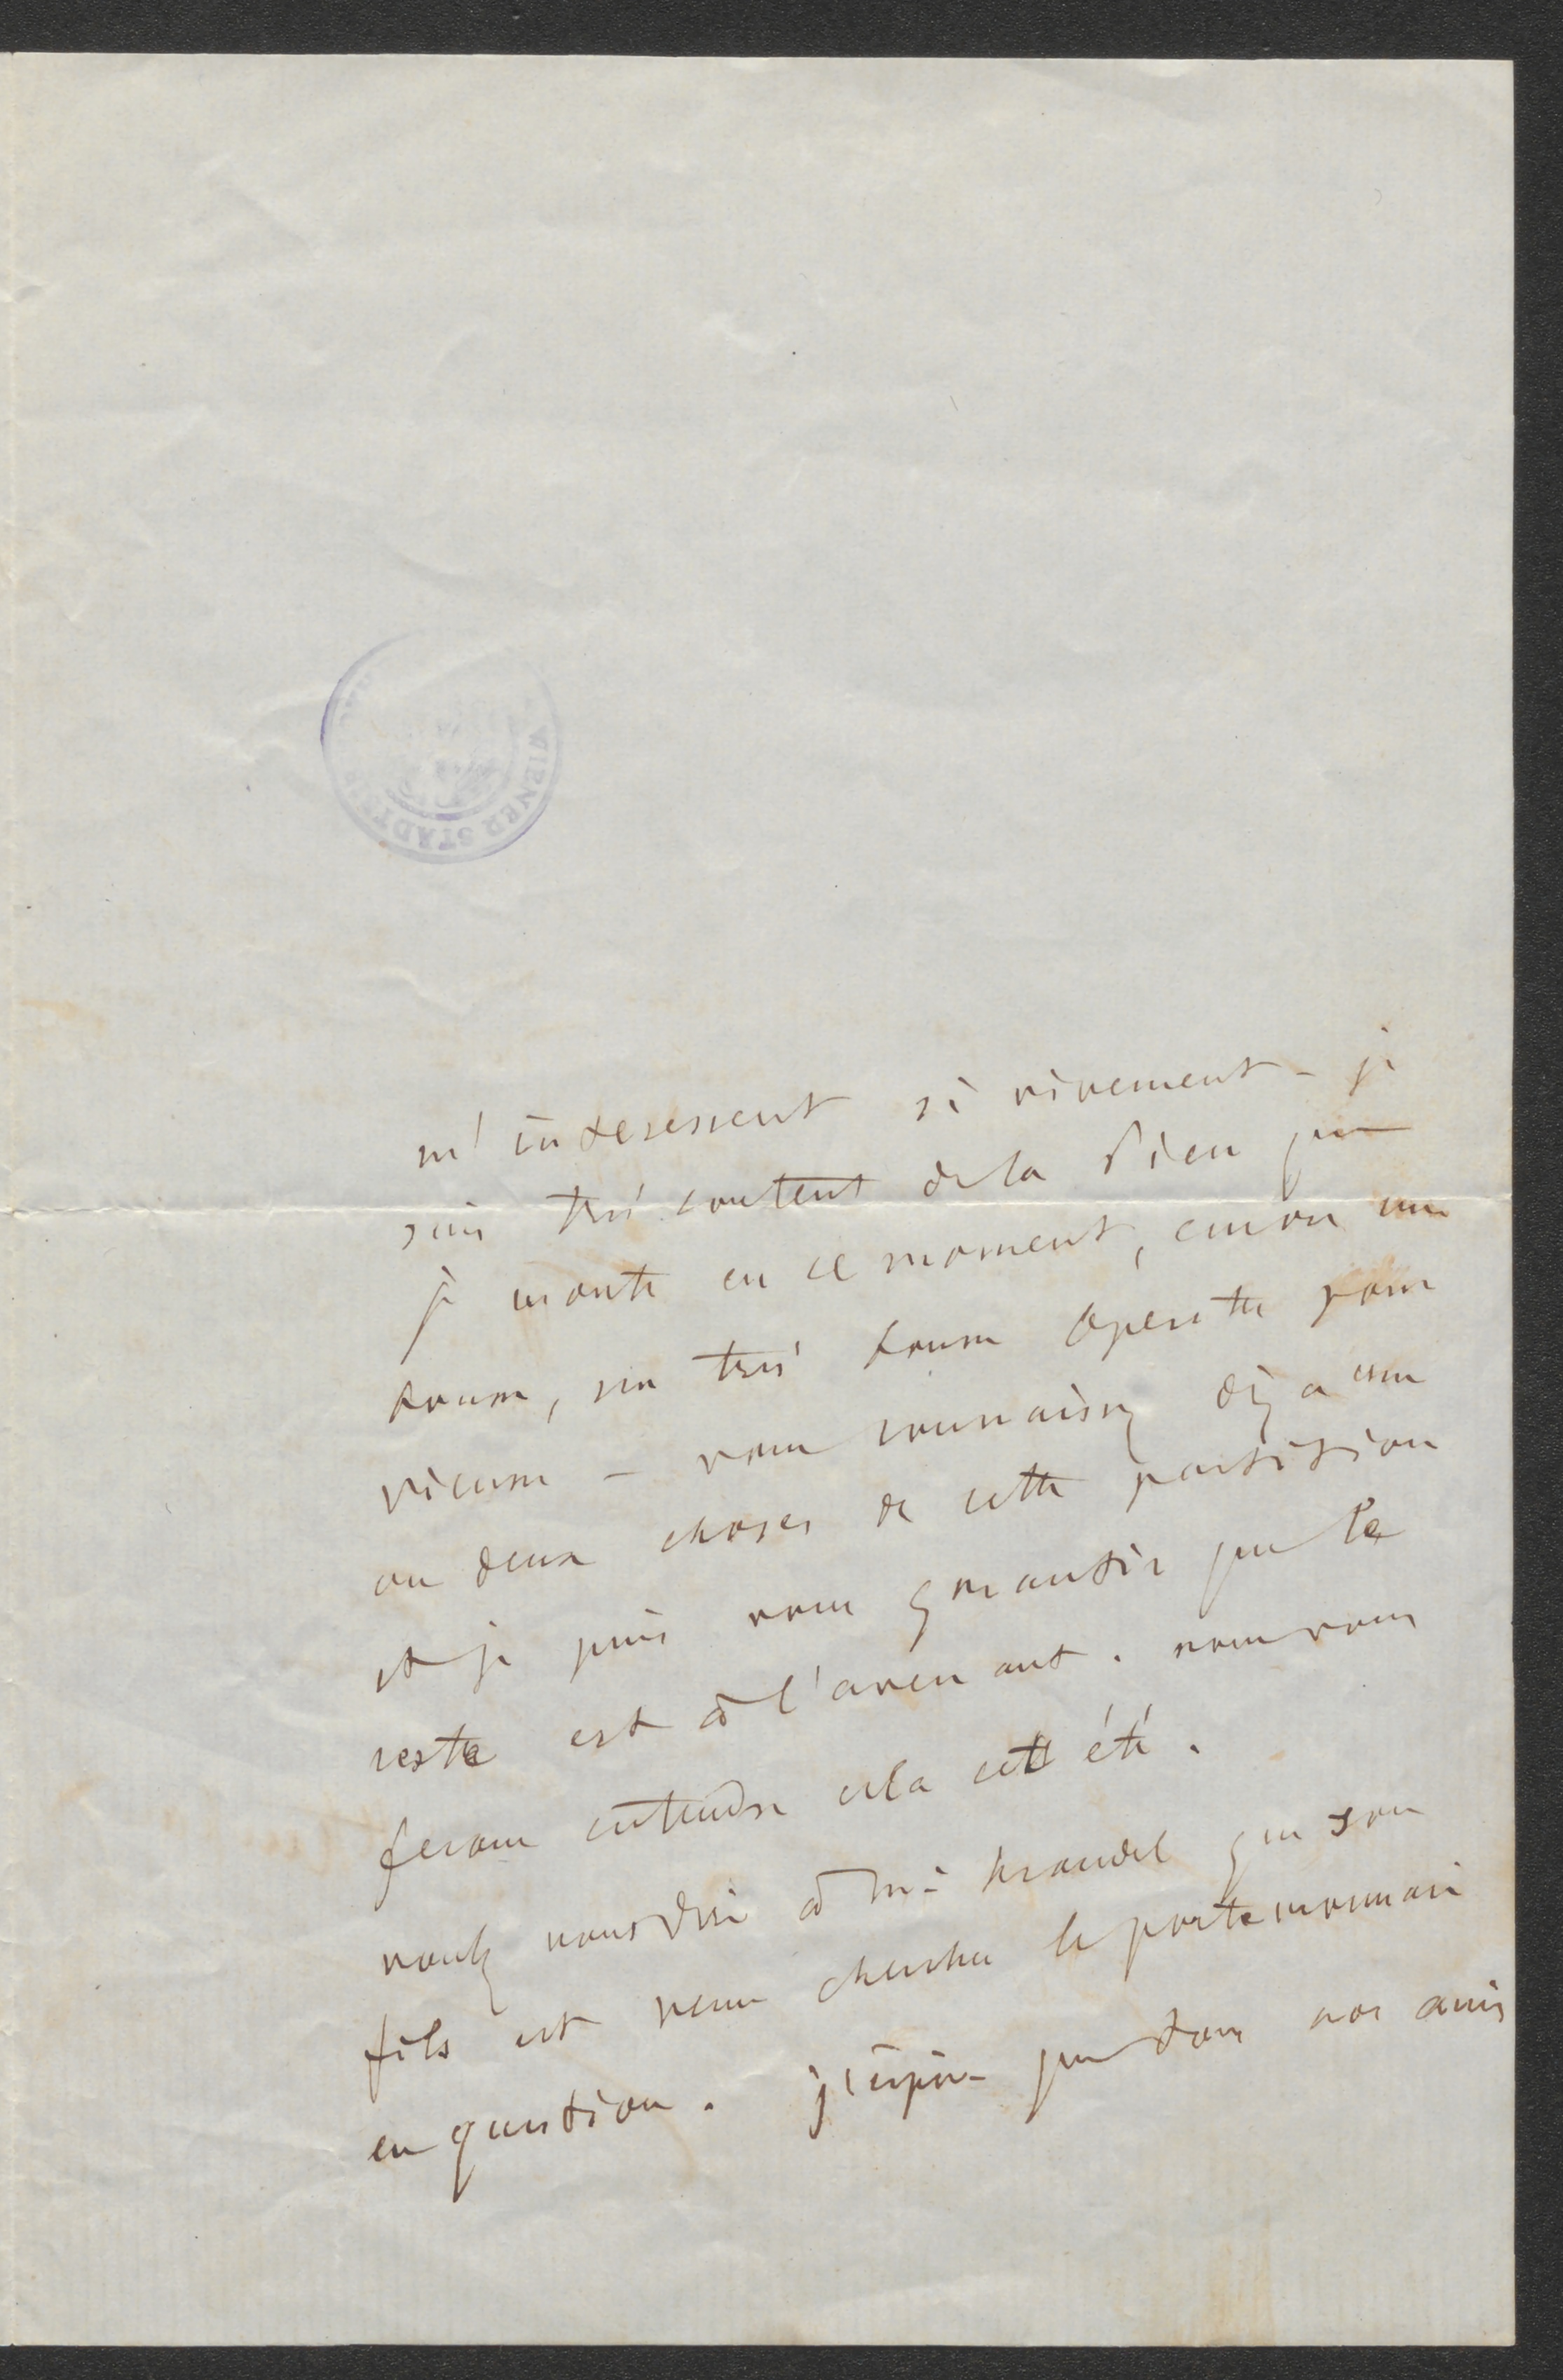 m'interessent si vivement – je
suis très content de la Pièce que
je monte en ce moment, encore une
bonne, une très bonne Operette pour
vienne – vous connaissez déja une
ou deux choses de cette partition
et je puis vous garantir que le
reste est à l'avenant. nous vous
ferons entendre cela cet été.
voulez vous dire à Mr. Brandel que son
fils est venu chercher le porte monnaie
en question. j'espère que tous nos amis
WIENER STADT